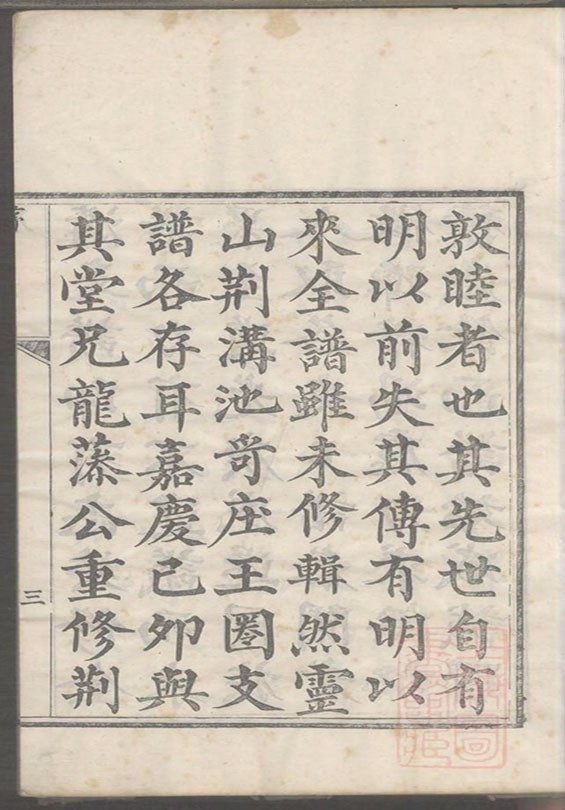 敦睦者也其先世自有
明以前失其傳有明以
來全譜雖未修輯然靈
山荆溝池哿庄王圏支
譜各存耳嘉慶己夘與
其堂兄龍藻公重修荆
三